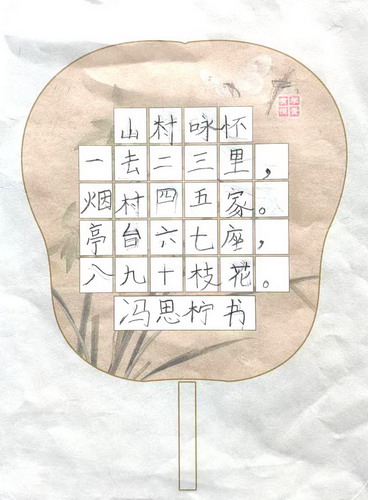 山村咏怀
一去二三里，
烟村四五家。
亭台六七座，
八九十枝花。
冯思柠书